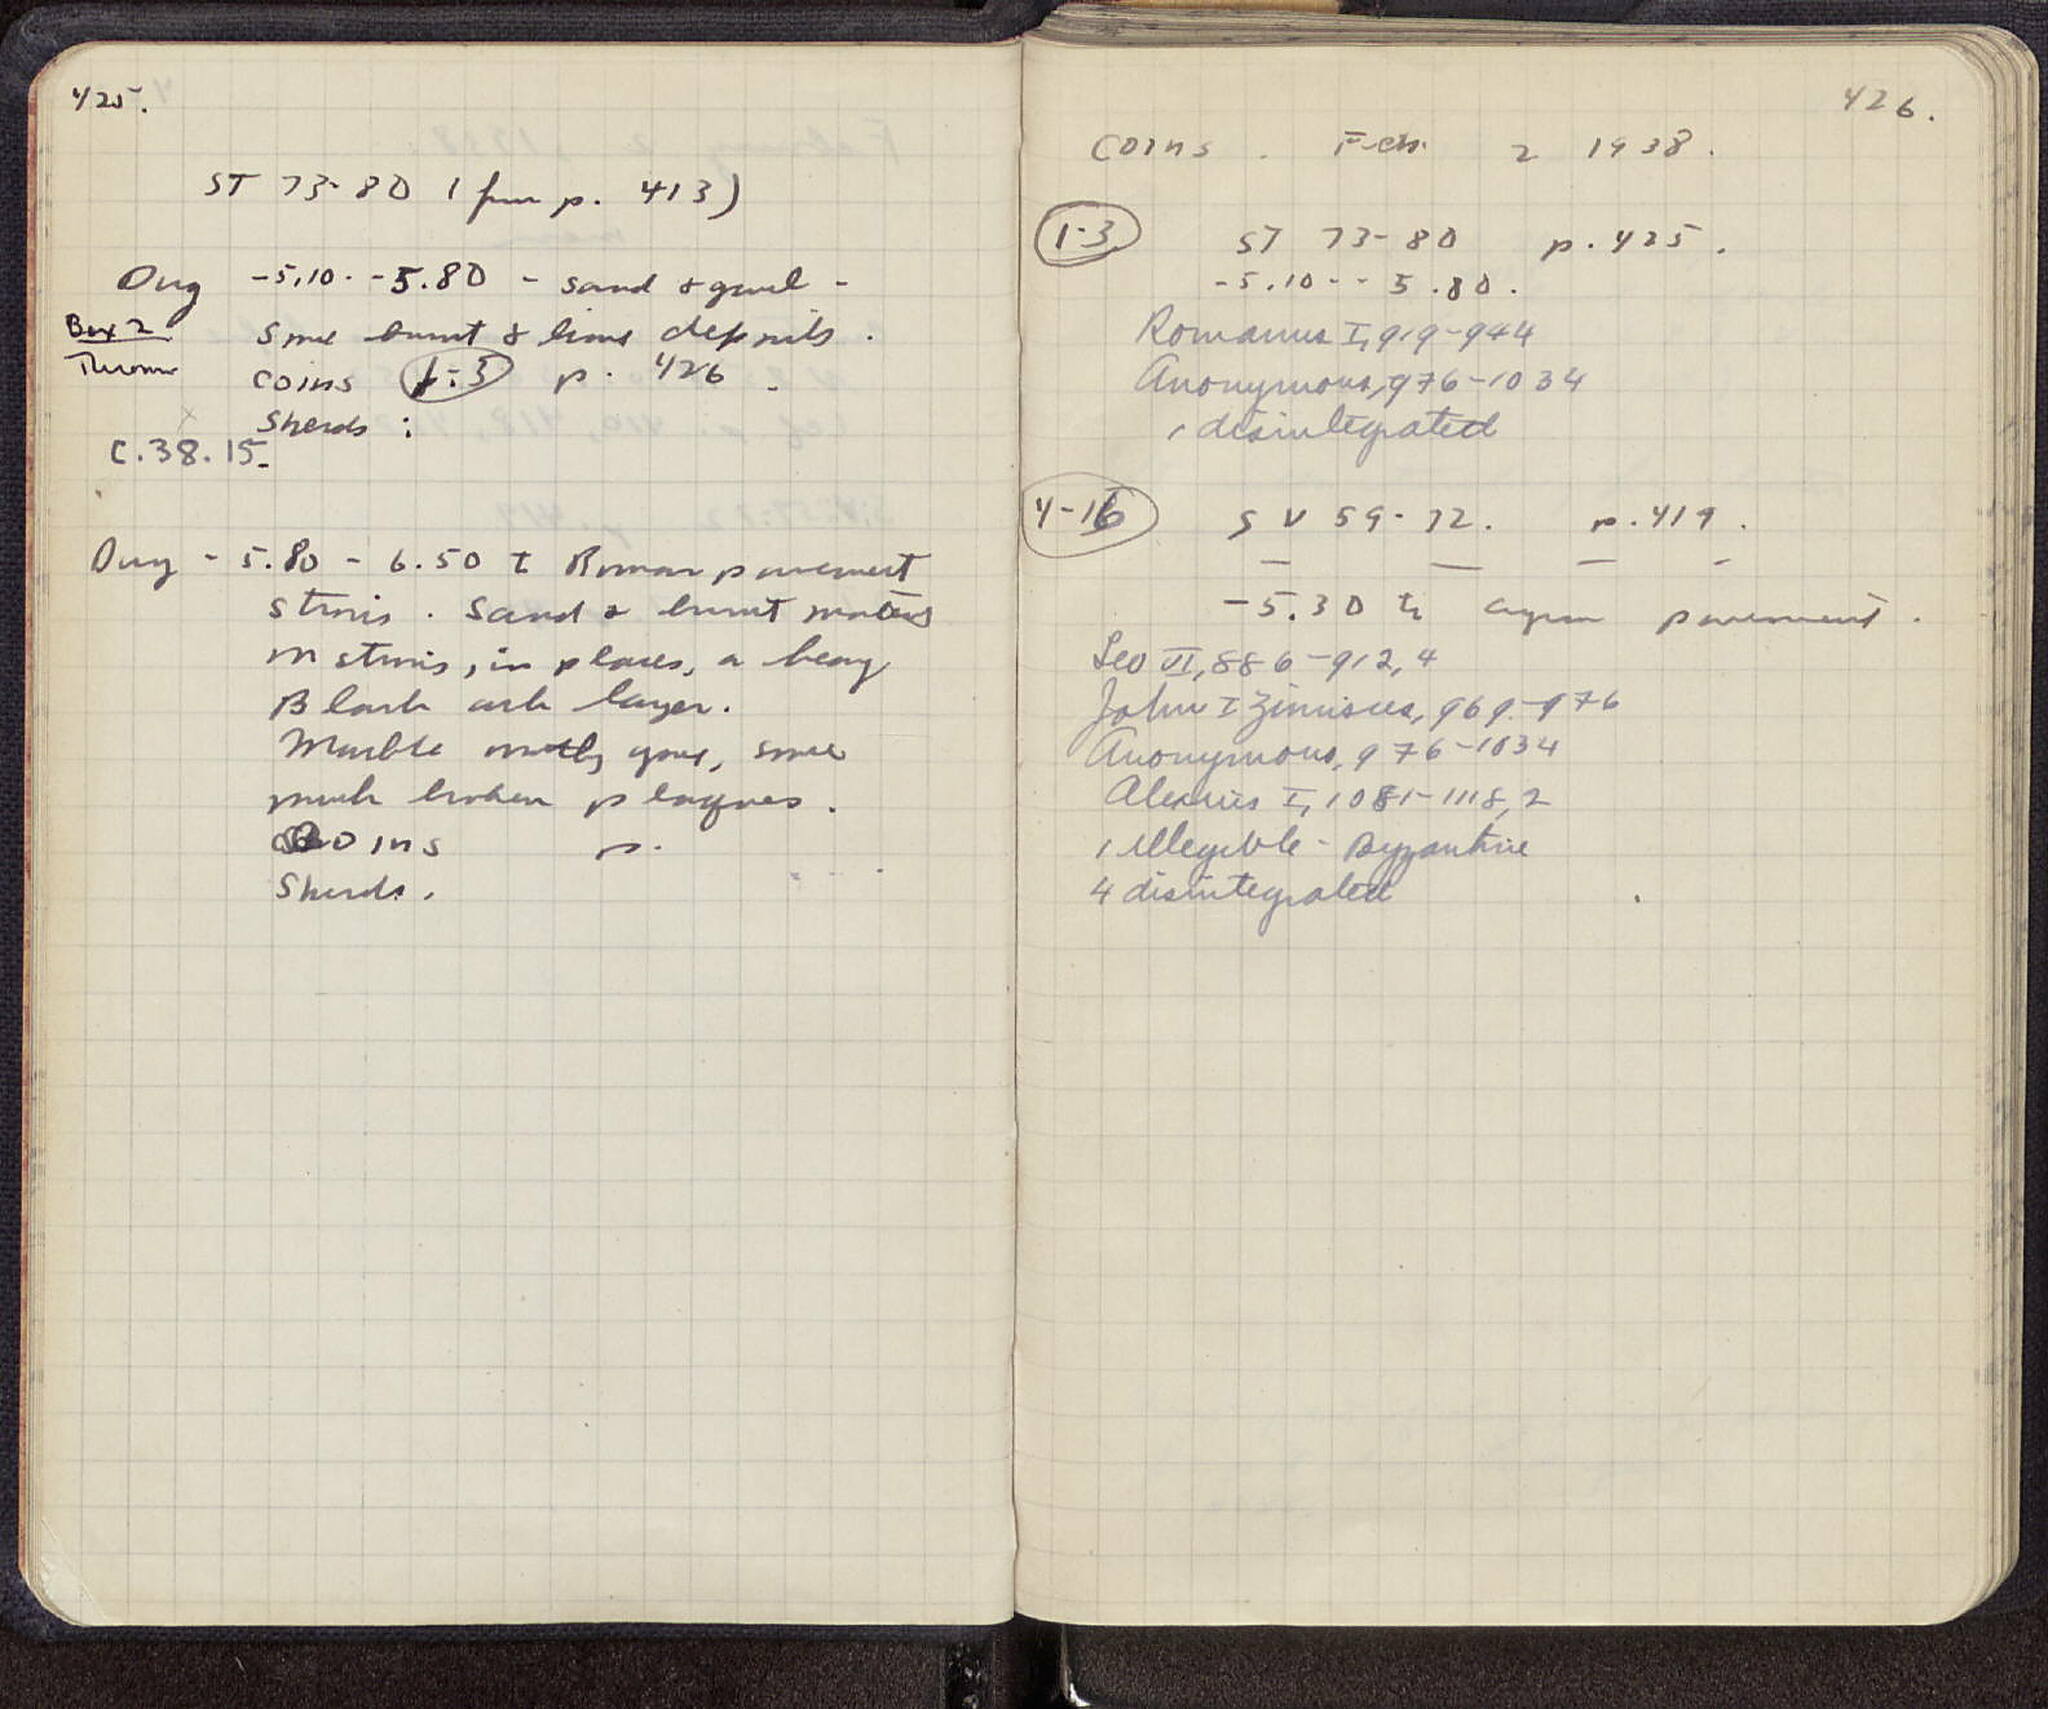 425.
ST 73-80 (from p. 413)
Dug -5.10 - -5.80 - sand & gravel -
Box 2
some burnt & lime deposits.
Throw
coins 1-3 p. 426.
sherds:
C.38.15.
Dug -5.80 - 6.50 to Roman pavement
strosis. Sand & burnt
in strosis, in places, a heavy
Black ash layer.
Marble mostly gone, some
much broken plaques.
coins p.
Sherds.
426.
Coins. Feb. 2 1938.
1-3 ST 73-80 p. 425.
-5.10 - -5.80.
Romanus I, 919-944
Anonymous, 976-1034
1 disintegrated
4-16 SV 59-72. p. 419.
— — — -
-5.30 to agora pavement.
Leo VI, 886-912, 4
John I Zimisces, 969-976
Anonymous, 976-1034
Alexius I, 1081-1118, 2
1 illegible - Byzantine
4 disintegrated